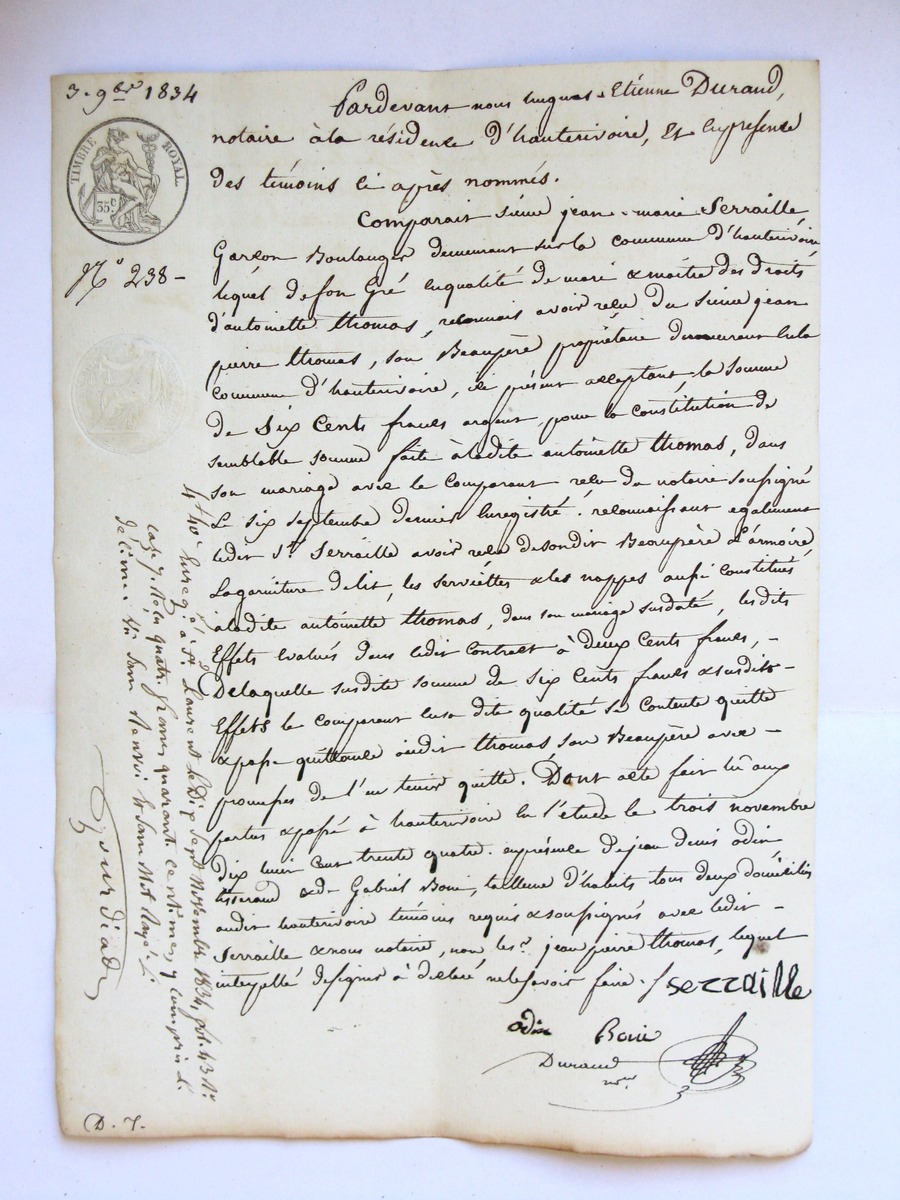 3. 9bre 1834
TIMBRE ROYAL
35 c
N° 238 -
Pardevant nous hugues-Etiènne Durand,
notaire à la résidence d'hauterivoire, Et en presence
des témoins ci après nommés.
Comparait sieur jean-marie Serraille
Garcon Boulanger demeurant sur la commune d'hauterivoire
lequel de son Gré en qualité de mari & maître des droits
d'antoinette thomas, reconnais avoir reçu du sieur jean
pierre thomas, son Beaupère propriétaire demeurant en la
commune d'hauterivoire, ici présent acceptant la somme
de six cents francs argent, pour la constitution de
semblable somme faite à ladite antoinette thomas, dans
son mariage avec le comparant reçu du notaire soussigné
Le six septembre dernier Enregistré. reconnaissant également
ledit Sr. Serraille avoir reçu de sondit Beaupère L'armoire
La garniture de lit, les serviéttes & les nappes aussi constitués
à ladite antoinette thomas, dans son mariage susdaté, les dits
Effets évalués dans ledit contract à deux cents francs, -
De laquelle susdite somme de six cents francs & susdits -
Effets le comparant en sa dite qualité se contente quitte
& passe quittance audit thomas son Beaupère avec -
promesses de l'en tenir quitte. Dont acte fait lu aux
parties & passé à hauterivoire En l'étude le trois novembre
dix huit cent trente quatre. en présence de jean denis odin
tisserand & de Gabriel Boni, tailleur d'habits tous deux domiciliés
audit hauterivoire témoins requis & soussignés avec ledit -
Serraille & nous notaire, non le sr. jean pierre thomas, lequel
interpellé de signer à déclaré ne le savoir faire. / serraille
odin Boni
Durand
nre.
4 f 40 c Enregé. à St. Laurent le Dix Sept Novembre 1834, fol. 43 Ro.
case 7. Reçu quatre francs quarante centimes, y compris le
décime.
D. J.